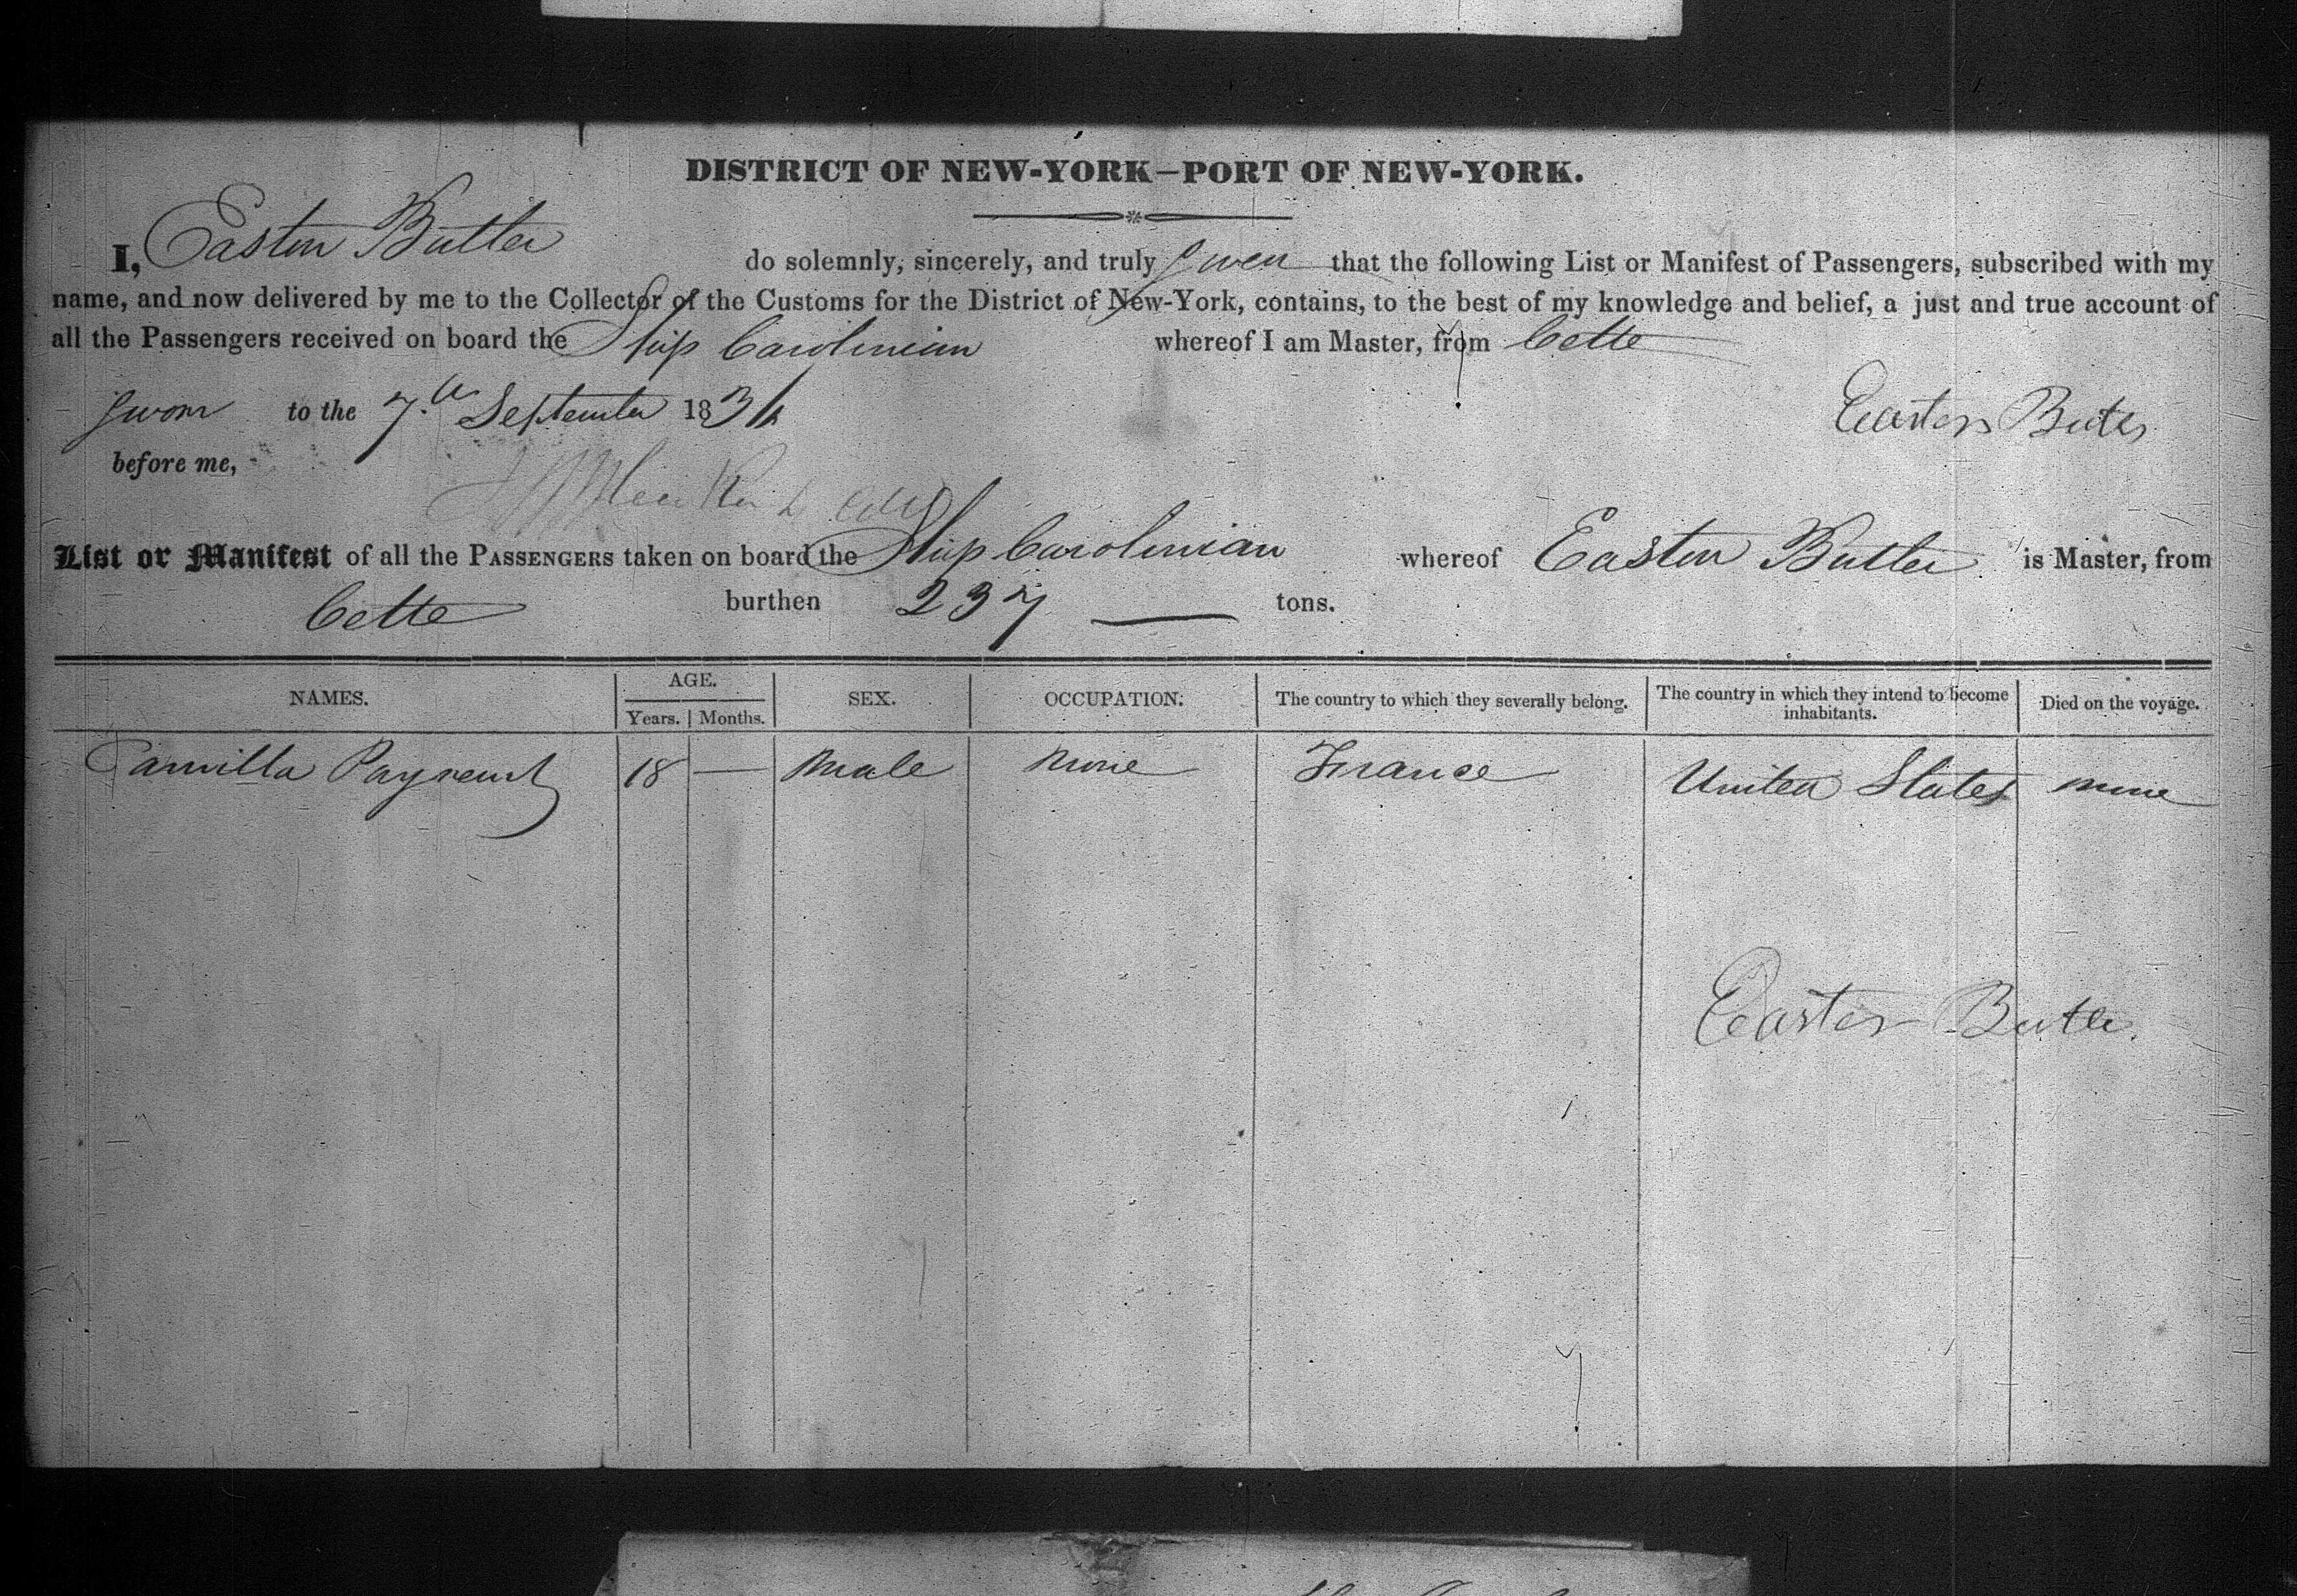 DISTRICT OF NEW-YORK—PORT OF NEW-YORK.
I, Easton Butler do solemnly, sincerely, and truly swear that the following List or Manifest of Passengers, subscribed with my
name, and now delivered by me to the Collector of the Customs for the District of New-York, contains, to the best of my knowledge and belief, a just and true account of
all the Passengers received on board the Ship Carolinian whereof I am Master, from Cette
Sworn to the 7.th September 183
Easton Butler
before me,
List or Manifest of all the PASSENGERS taken on board the Ship Carolinian whereof Easton Butler is Master, from
Cette burthen 237 — tons.
NAMES. AGE. SEX. OCCUPATION. The country to which they severally belong. The country in which they intend to become inhabitants. Died on the voyage.
Years. Months.
Camilla 18 — Male None France United States none
Easton Butler.